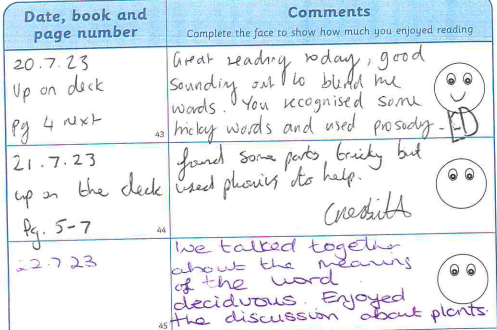 Date, book and
page number
Comments
Complete the face to show how much you enjoyed reading
20.7.23
Up on deck
Pg 4 next
43
Great reading today, good
sounding out to blend the
words. You recognised some
tricky words and used prosody.
21.7.23
up on the deck
Pg. 5-7
44
found some parts tricky but
used phonics to help.
22.7.23
45
We talked together
about the meaning
of the word
deciduous. Enjoyed
the discussion about plants.